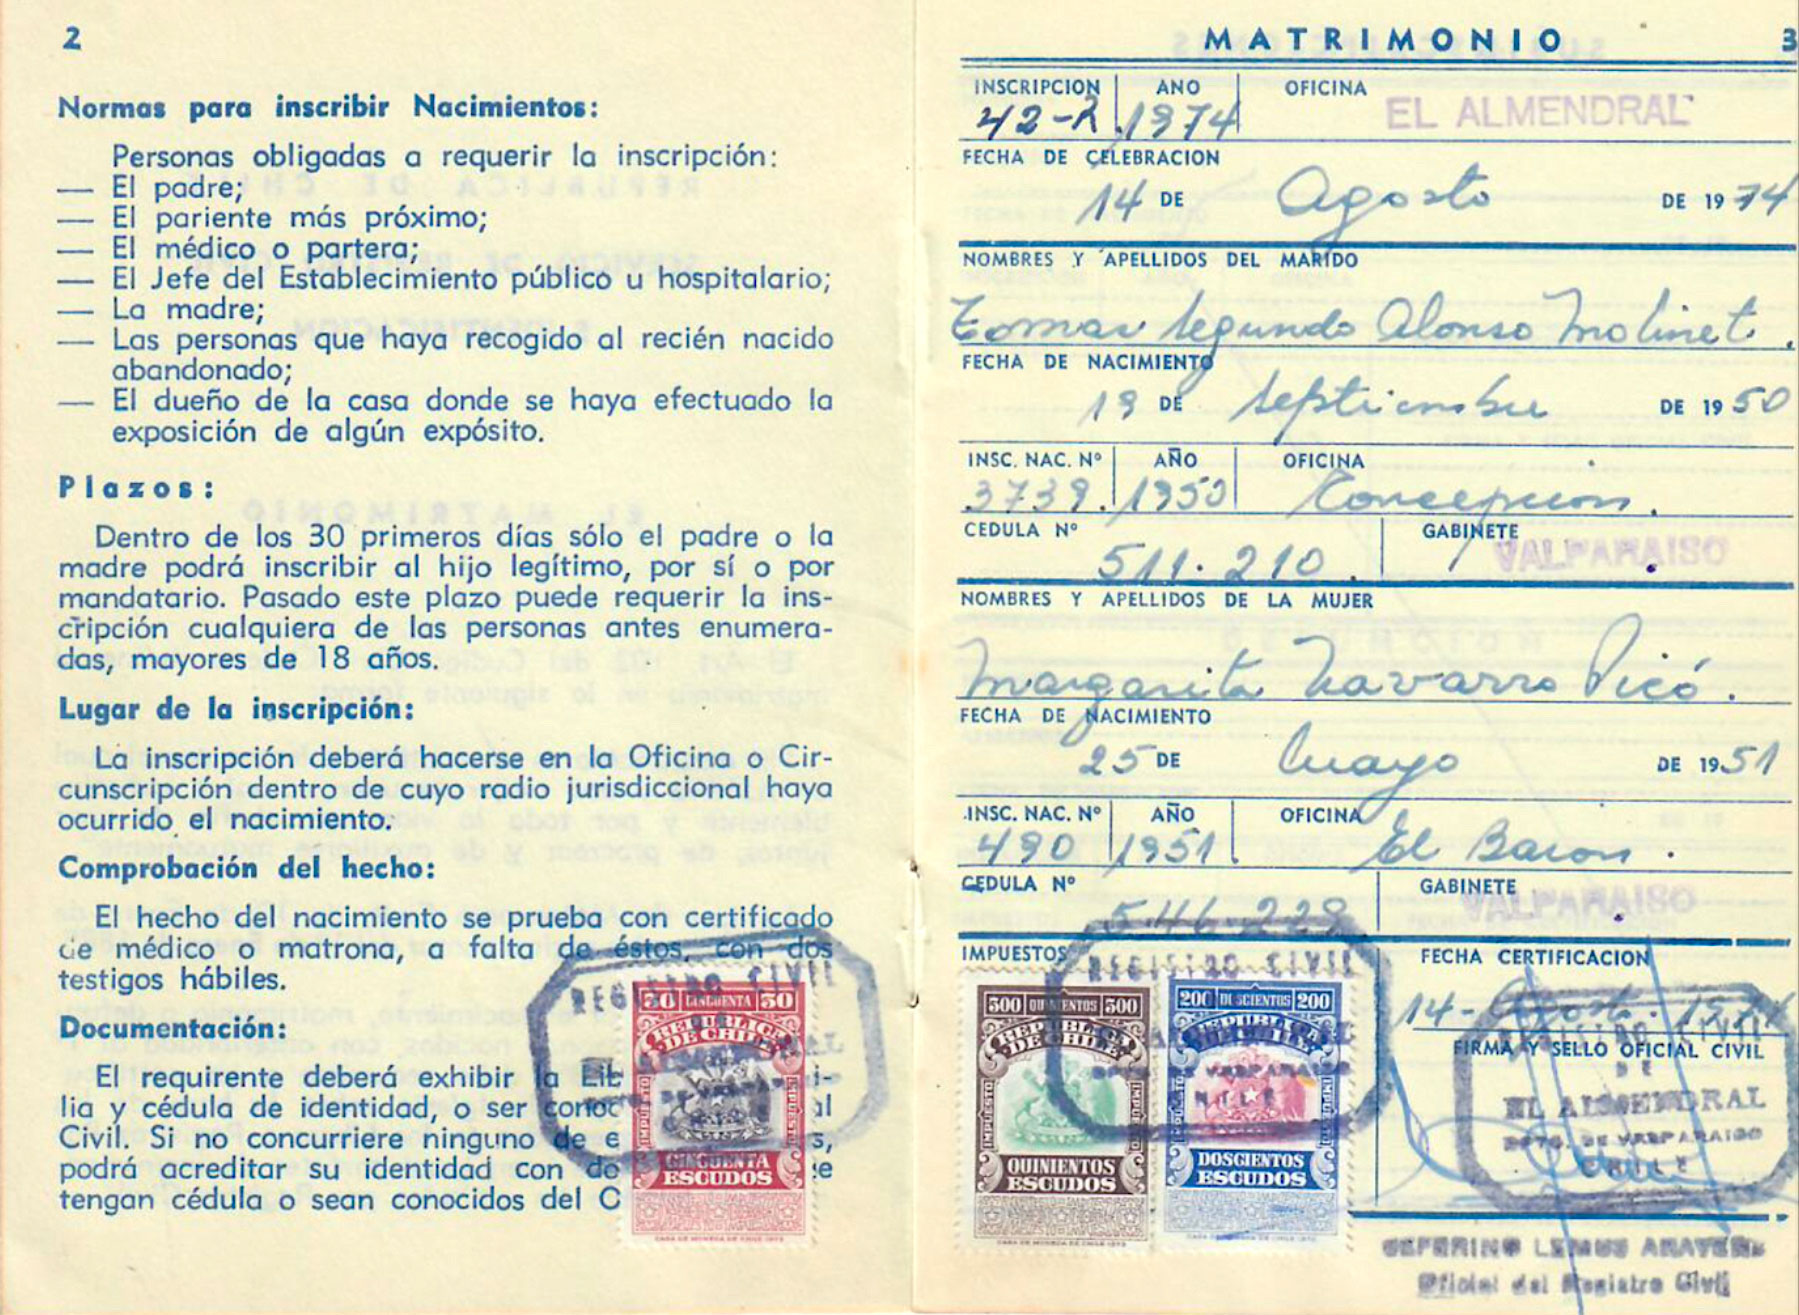 2
Normas para inscribir Nacimientos:
Personas obligadas a requerir la inscripción:
— El padre;
— El pariente más próximo;
— El médico o partera;
— El Jefe del Establecimiento público u hospitalario;
— La madre;
— Las personas que haya recogido al recién nacido
abandonado;
— El dueño de la casa donde se haya efectuado la
exposición de algún expósito.
Plazos:
Dentro de los 30 primeros días sólo el padre o la
madre podrá inscribir al hijo legítimo, por sí o por
mandatario. Pasado este plazo puede requerir la ins-
cripción cualquiera de las personas antes enumera-
das, mayores de 18 años.
Lugar de la inscripción:
La inscripción deberá hacerse en la Oficina o Cir-
cunscripción dentro de cuyo radio jurisdiccional haya
ocurrido el nacimiento.
Comprobación del hecho:
El hecho del nacimiento se prueba con certificado
de médico o matrona, a falta de éstos, con dos
testigos hábiles.
Documentación:
El requirente deberá exhibir la Lib
lia y cédula de identidad, o ser conoc al
Civil. Si no concurriere ninguno de e s,
podrá acreditar su identidad con do e
tengan cédula o sean conocidos del C
REGISTRO CIVIL
50 CINCUENTA 50
REPUBLICA
DE CHILE
IMPUESTO IMPUESTO
CINCUENTA
ESCUDOS
CASA DE MONEDA DE CHILE 1973
MATRIMONIO 3
INSCRIPCION AÑO OFICINA
42-R 1974 EL ALMENDRAL
FECHA DE CELEBRACION
14 DE Agosto DE 1974
NOMBRES Y APELLIDOS DEL MARIDO
Tomas Segundo Alonso Molinet.
FECHA DE NACIMIENTO
19 DE Septiembre DE 1950
INSC. NAC. Nº AÑO OFICINA
3739. 1950 Concepcion.
CEDULA Nº GABINETE
511.210. VALPARAISO
NOMBRES Y APELLIDOS DE LA MUJER
Margarita Navarro Picó.
FECHA DE NACIMIENTO
25 DE Mayo DE 1951
INSC. NAC. Nº AÑO OFICINA
490 1951. El Baron.
CEDULA Nº GABINETE
546.229 VALPARAISO
IMPUESTOS FECHA CERTIFICACION
REGISTRO CIVIL
14- Agosto. 1974
FIRMA Y SELLO OFICIAL CIVIL
500 QUINIENTOS 500
REPUBLICA
DE CHILE
IMPUESTO IMPUESTO
QUINIENTOS
ESCUDOS
200 DOSCIENTOS 200
REPUBLICA
DE CHILE
IMPUESTO IMPUESTO
DOSCIENTOS
ESCUDOS
REGISTRO CIVIL
DE
EL ALMENDRAL
DPTO. DE VALPARAISO
CHILE
CEFERINO LEMUS
Oficial del Registro Civil